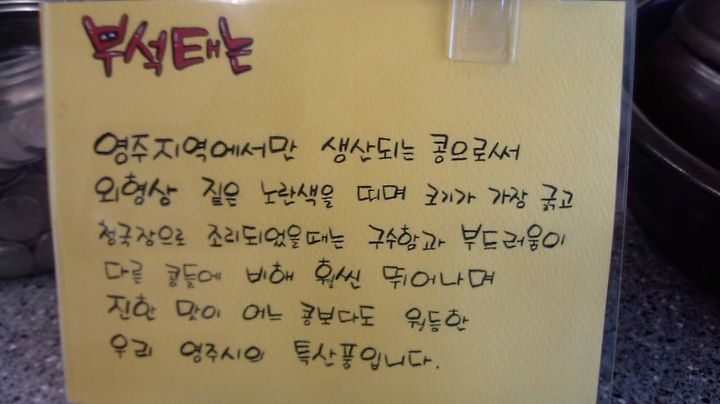 부석태는
영주지역에서만 생산되는 콩으로써
외형상 짙은 노란색을 띠며 크기가 가장 굵고
청국장으로 조리되었을때는 구수함과 부드러움이
다른 콩들에 비해 훨씬 뛰어나며
진한 맛이 어느 콩보다도 월등한
우리 영주시의 특산품입니다.